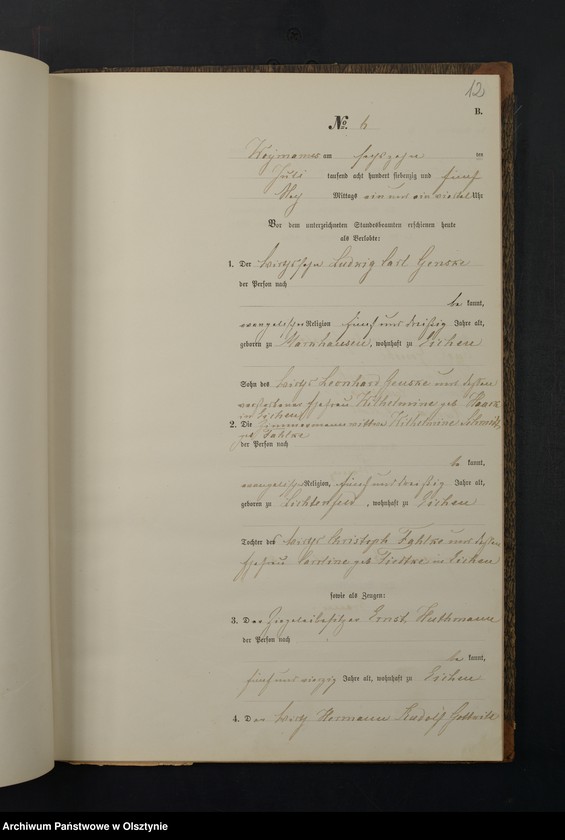 12
B.
№ 6
am sechszehn ten
Juli tausend acht hundert siebenzig und fünf
Mittags ein und ein viertel Uhr
Vor dem unterzeichneten Standesbeamten erschienen heute
als Verlobte:
1. Der Ludwig Carl Genske
der Person nach
be kannt,
evangelischer Religion fünf und dreißig Jahre alt,
geboren zu Markhausen, wohnhaft zu Eichen
Sohn des Wirths Leonhard Genske und dessen
verstorbenen Ehefrau Wilhelmine geb
in Eichen
2. Die Wilhelmine
geb Fahlke
der Person nach
be kannt,
evangelischer Religion, fünf und dreißig Jahre alt,
geboren zu , wohnhaft zu Eichen
Tochter des Wirths Christoph Fahlke und dessen
Ehefrau Caroline geb in Eichen
sowie als Zeugen:
3. Der Ziegeleibesitzer Ernst
der Person nach
be kannt,
fünf und vierzig Jahre alt, wohnhaft zu Eichen
4. Der Wirth Hermann Rudolf
Archiwum Państwowe w Olsztynie